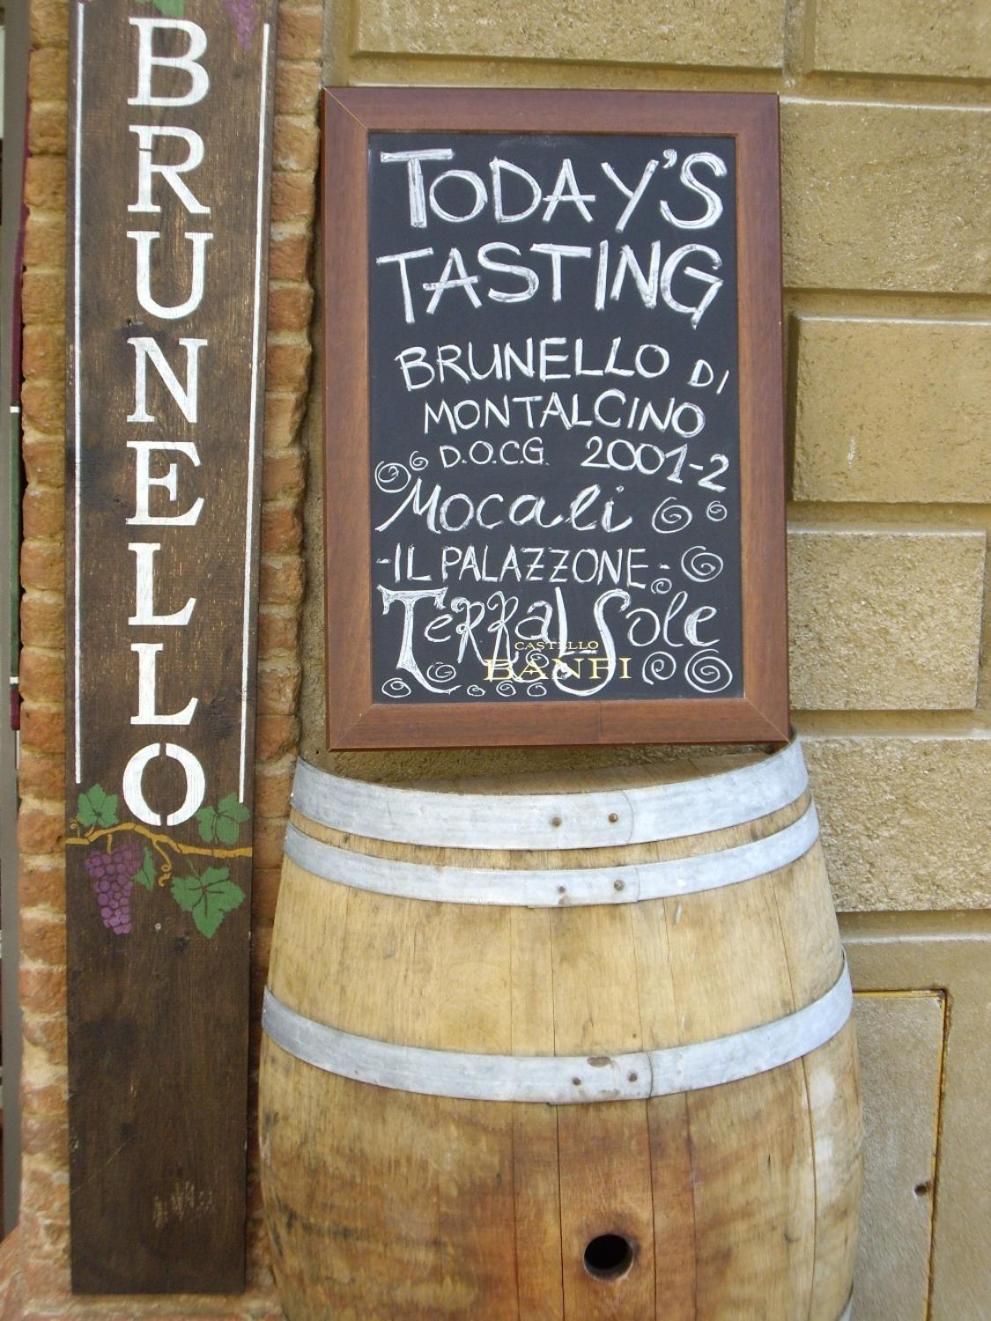 BRUNELLO
TODAY'S
TASTING
BRUNELLO DI
MONTALCINO
D.O.C.G. 2001-2
Mocali
-IL PALAZZONE-
TERRAL Sole
CASTELLO
BANFI